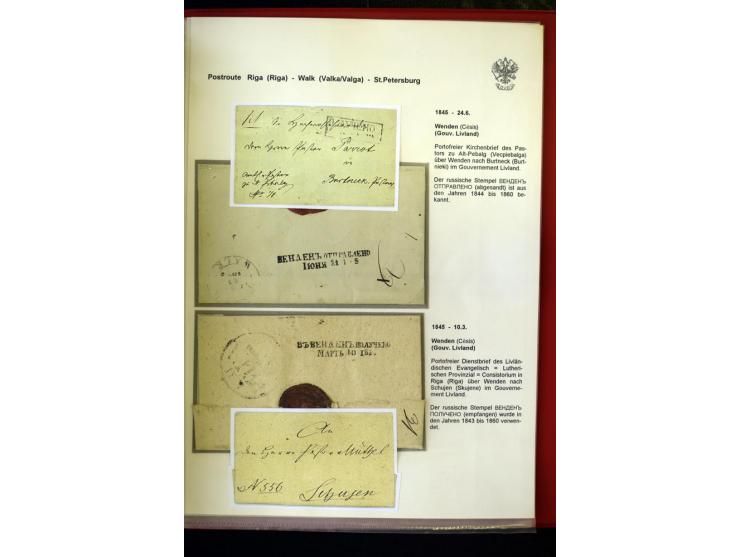 Postroute Riga (Riga) - Walk (Valka/Valga) - St.Petersburg
1845 - 24.6.
Wenden (Cēsis)
(Gouv. Livland)
Portofreier Kirchenbrief des Pas-
tors zu Alt-Pebalg (Vecpiebalga)
über Wenden nach Burtneck (Burt-
nieki) im Gouvernement Livland.
Der russische Stempel ВЕНДЕНЪ
ОТПРАВЛЕНО (abgesandt) ist aus
den Jahren 1844 bis 1860 be-
kannt.
dem Herrn Pastor
in
Burtneck
ВЕНДЕНЪ ОТПРАВЛЕНО
ІЮНЯ 21
1845 - 10.3.
Wenden (Cēsis)
(Gouv. Livland)
Portofreier Dienstbrief des Livlän-
dischen Evangelisch = Lutheri-
schen Provinzial = Consistorium in
Riga (Riga) über Wenden nach
Schujen (Skujene) im Gouverne-
ment Livland.
Der russische Stempel ВЕНДЕНЪ
ПОЛУЧЕНО (empfangen) wurde in
den Jahren 1843 bis 1860 verwen-
det.
ВЪ ВЕНДЕНЪ ПОЛУЧЕНО
МАРТЪ 10
An
den Herrn Pastor Müthel
N 556
Schujen